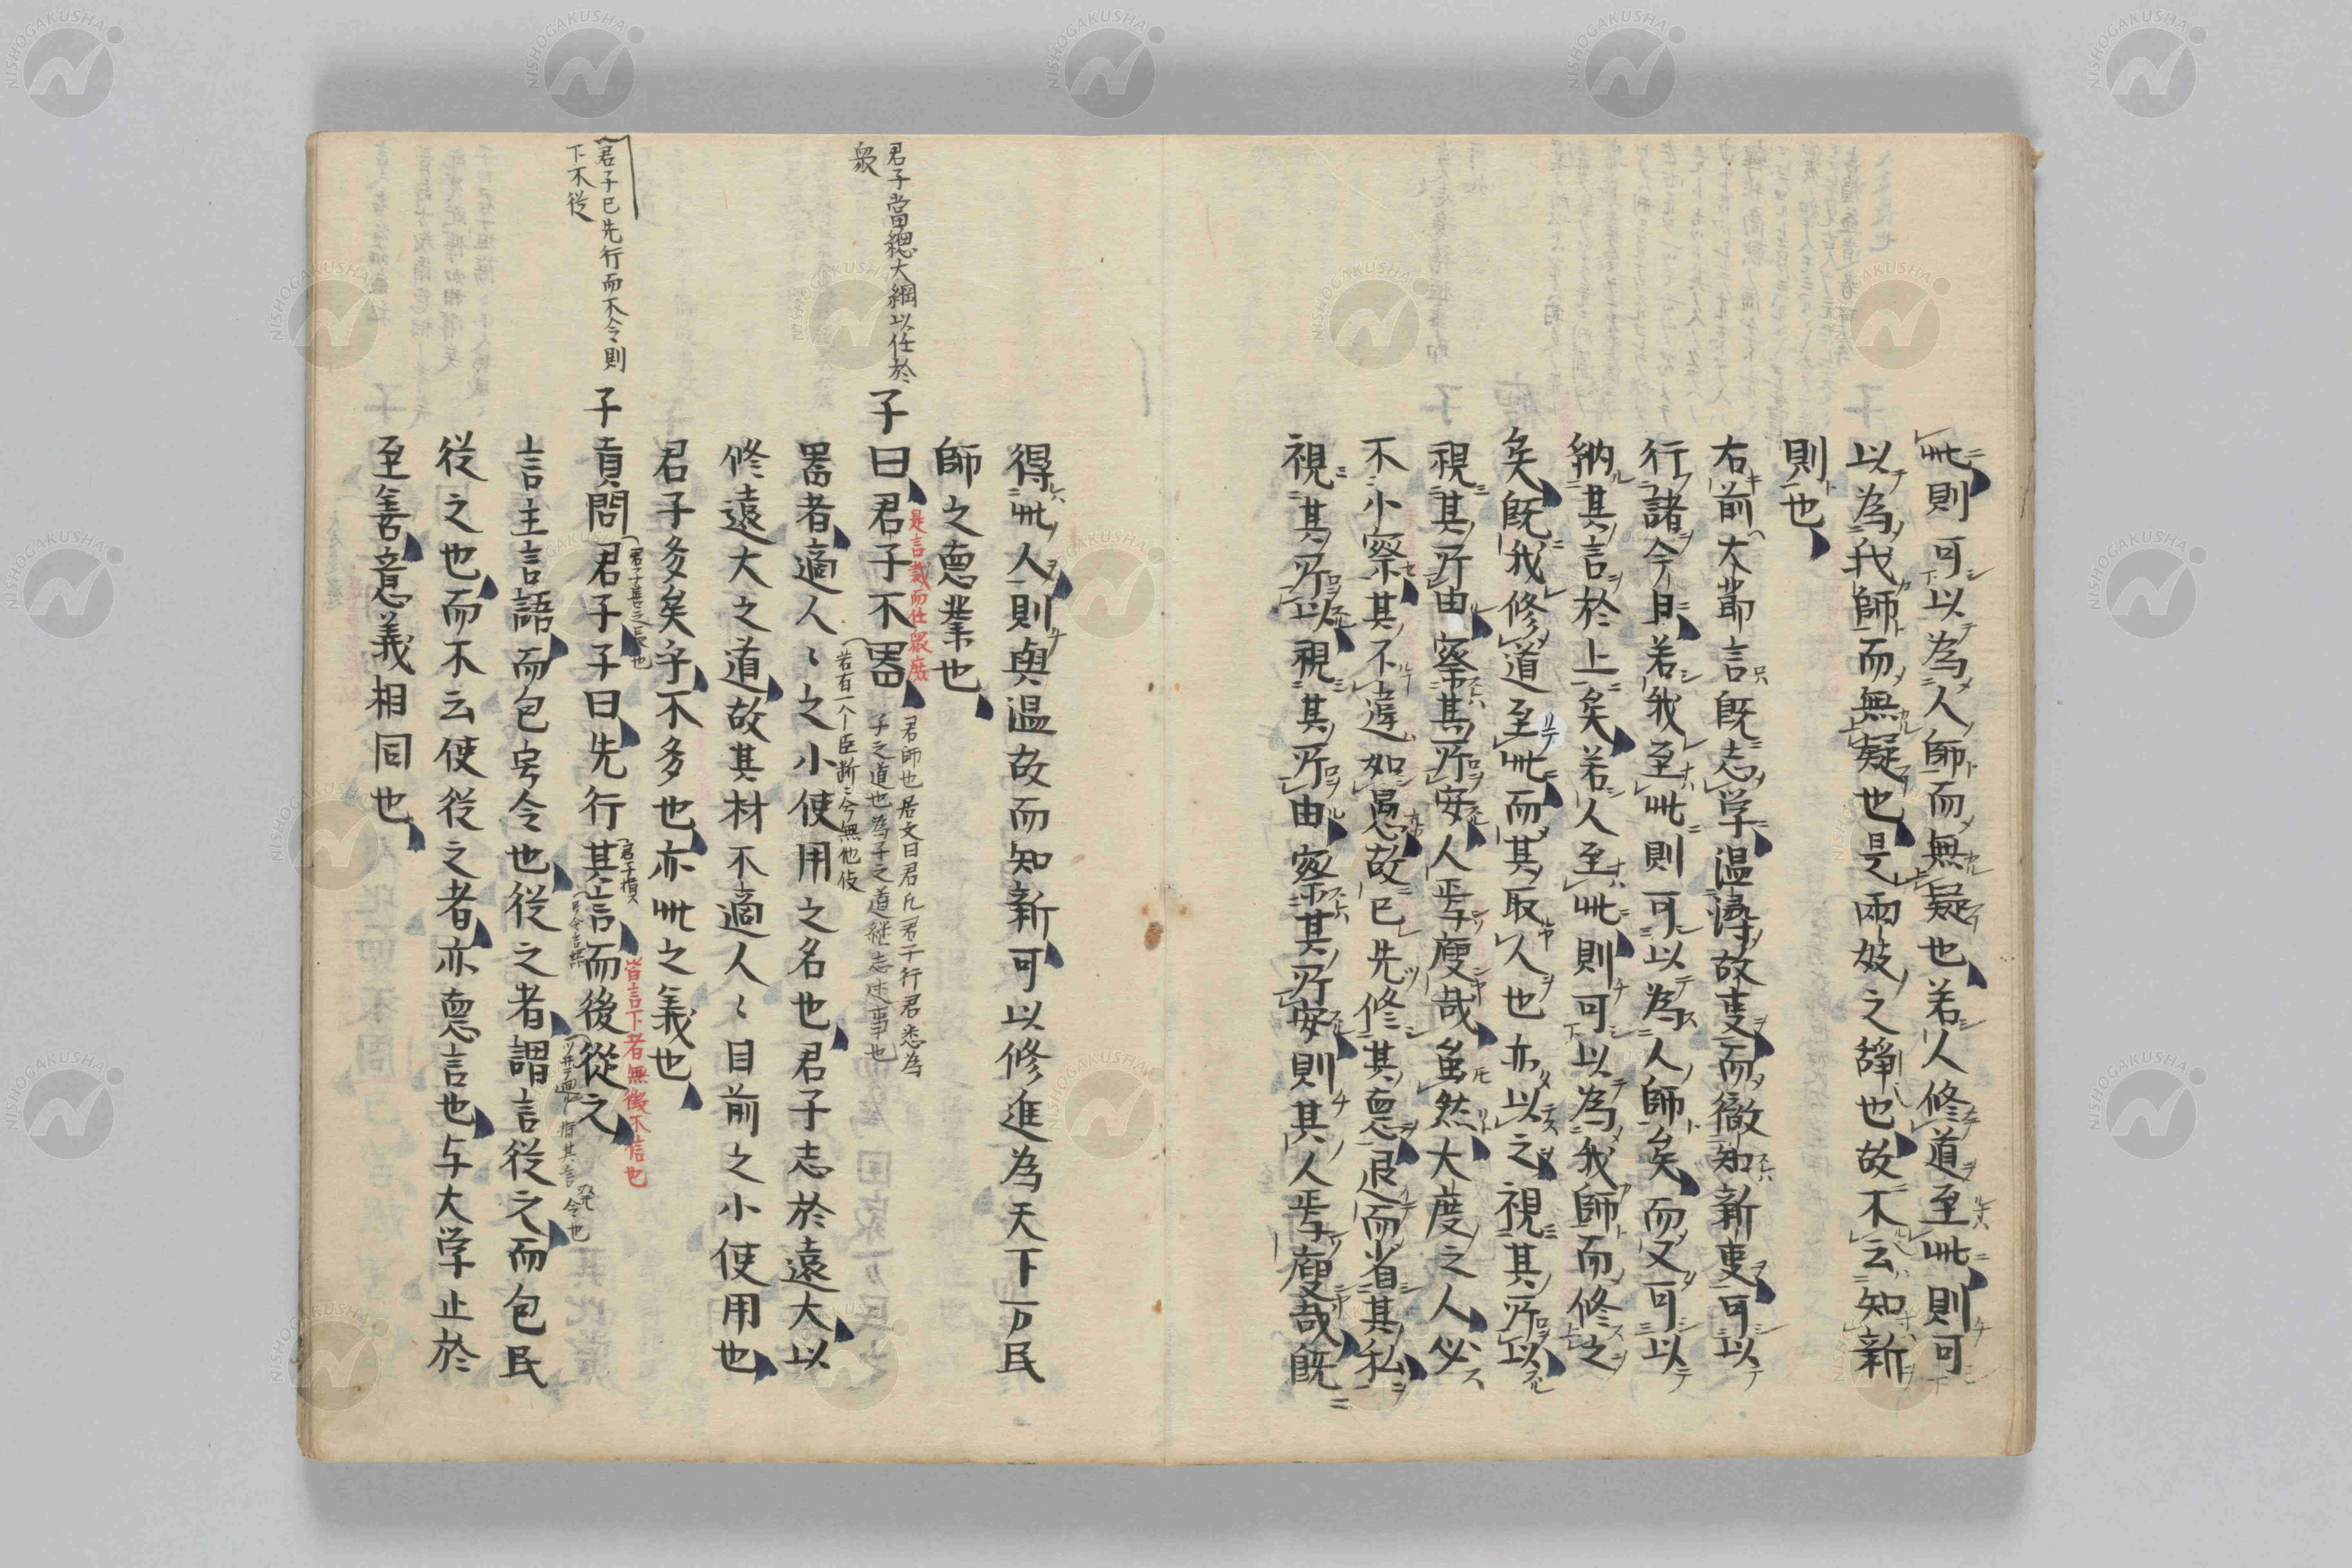 此則可以為人師而無疑也若人修道至此則可
以為我師而無疑也是兩妓之諍也故不云知新
則也
右前大節言既志学温尋故事而徹知新事可以
行諸今日若我至此則可以為人師矣而又可以
納其言於上矣若人至此則可以為我師而修之
矣既我修道至此而其取人也亦以之視其所以
視其所由察其所安人焉廋哉虽然大度之人必
不小察其不違如愚故已先修其德退而省其私
視其所以視其所由察其所安則其人焉廋哉既
得此人則與温故而知新可以修進為天下万民
師之德業也
君子當總大綱以任於
衆
子曰君子不器
是言裁而任衆庶
君師也居文曰君凡君子行君悉為
子之道也為子之道継志述事也
若有一个臣断〻今無他伎
器者適人〻之小使用之名也君子志於遠大以
修遠大之道故其材不適人〻目前之小使用也
君子多矣乎不多也亦此之義也
君子已先行而不令則
下不從
子貢問君子子曰先行其言而後從之
皆言下者無徴不信也
言主言語而包号令也從之者謂言從之而包民
從之也而不云使從之者亦德言也与大学止於
至善意義相同也
NISHOGAKUSHA